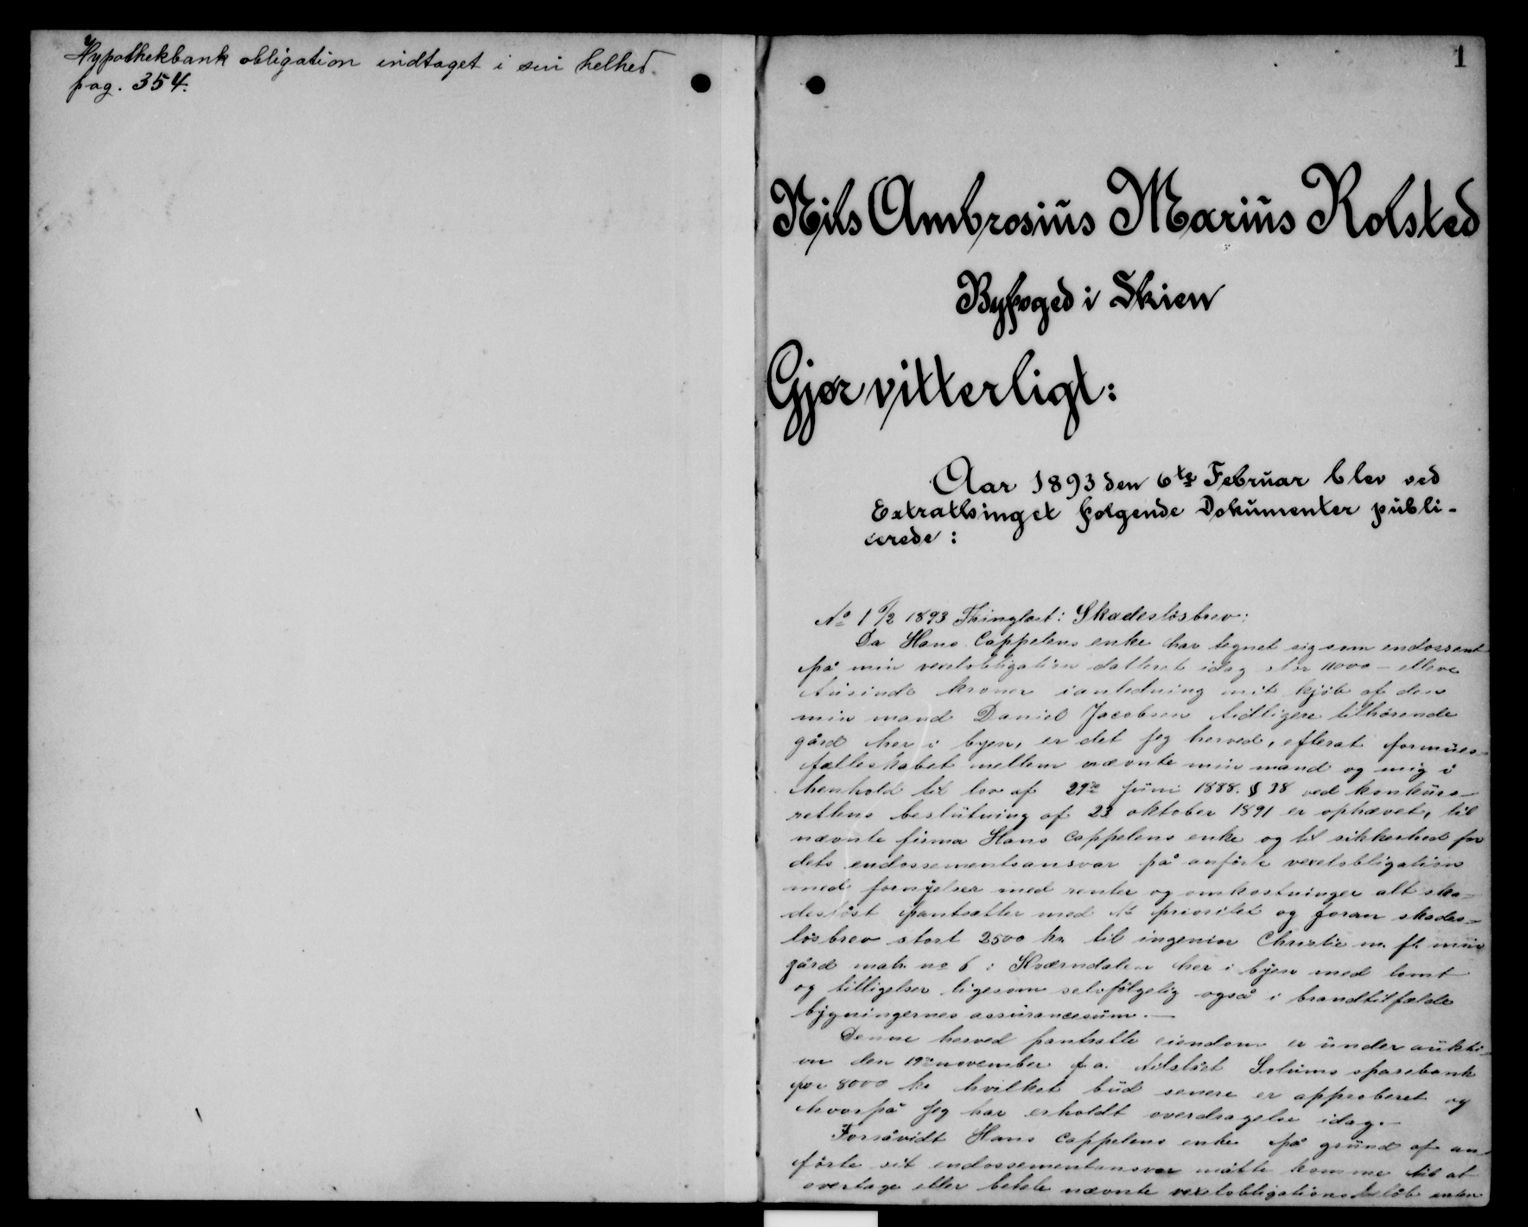 Hypothekbank obligation indtaget i sin helhed.
pag. 354.
1
Nils Ambrosius Marius Rolsted
Byfoged i Skien
Gjør vitterligt:
Aar 1893 den 6te Februar blev ved
Extrathinget følgende Dokumenter publi-
cerede:
No 1 1/2 1893 Thinglæst: Skadesløsbrev:
Da Hans Cappelens enke har tegnet sig som endossent
på min vexelobligation datteret idag stor 11000 - elleve
tusinde kroner i anledning mit kjøb af den
min mand Daniel Jacobsen tidligere tilhørende
gård her i byen, er det jeg herved, efterat formues-
fælleskabet mellem nævnte min mand og mig i
henhold til lov af 29de Juni 1888. § 38 ved konkurs-
rettens beslutning af 23 oktober 1891 er ophævet, til
nævnte firma Hans Cappelens enke og til sikkerhed for
dets endossementsansvar på anførte vexelobligation
med fornyelser med renter og omkostninger alt ska-
desløst pantsætter med 1te prioritet og foran skades-
løsbrev stort 2500 kr til ingeniør Christie m. fl. min
gård matr. no 6 i Kværndalen her i byen med tomt
og tilligelser ligesom selvfølgelig også i brandtilfælde
bygningernes assurancesum.—
Denne herved pantsatte eiendom er under aukti-
on den 19de november f. a. tilslået Solums sparebank
for 8000 kr hvilket bud senere er approberet og
hvorpå jeg har erholdt overdragelse idag.—
Forsåvidt Hans Cappelens enke på grund af an-
førte sit endossementansvar måtte komme til at
overtage eller betale nævnte vexelobligations beløb enten